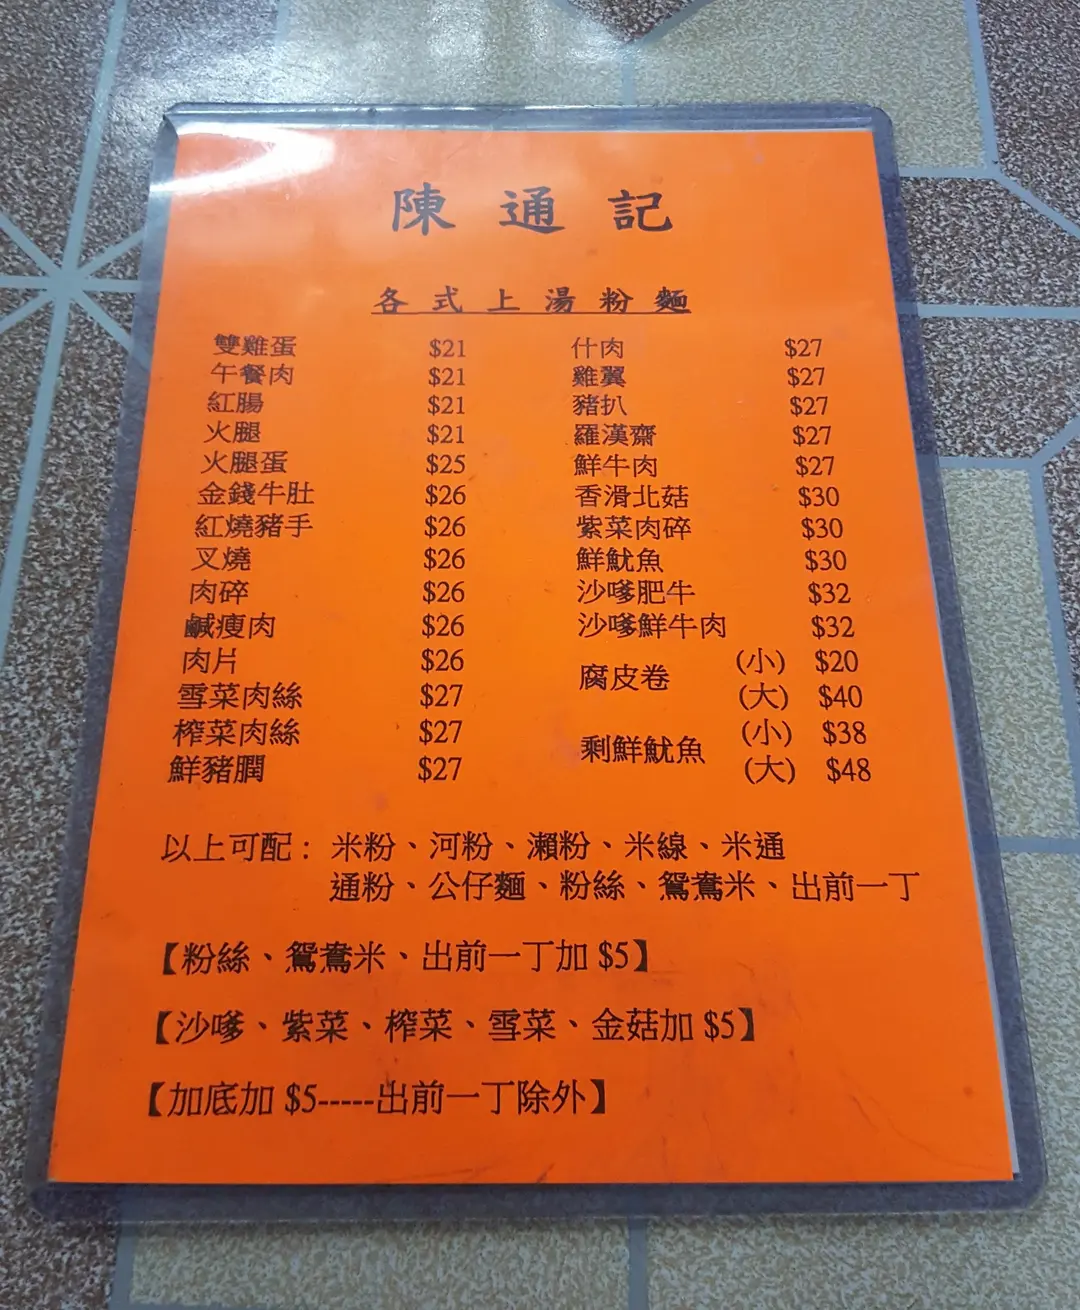 陳通記
各式上湯粉麵
雙雞蛋 $21
午餐肉 $21
紅腸 $21
火腿 $21
火腿蛋 $25
金錢牛肚 $26
紅燒豬手 $26
叉燒 $26
肉碎 $26
鹹瘦肉 $26
肉片 $26
雪菜肉絲 $27
榨菜肉絲 $27
鮮豬膶 $27
什肉 $27
雞翼 $27
豬扒 $27
羅漢齋 $27
鮮牛肉 $27
香滑北菇 $30
紫菜肉碎 $30
鮮魷魚 $30
沙嗲肥牛 $32
沙嗲鮮牛肉 $32
腐皮卷 (小) $20
(大) $40
剩鮮魷魚 (小) $38
(大) $48
以上可配： 米粉、河粉、瀨粉、米線、米通
通粉、公仔麵、粉絲、鴛鴦米、出前一丁
【粉絲、鴛鴦米、出前一丁加 $5】
【沙嗲、紫菜、榨菜、雪菜、金菇加 $5】
【加底加 $5-----出前一丁除外】